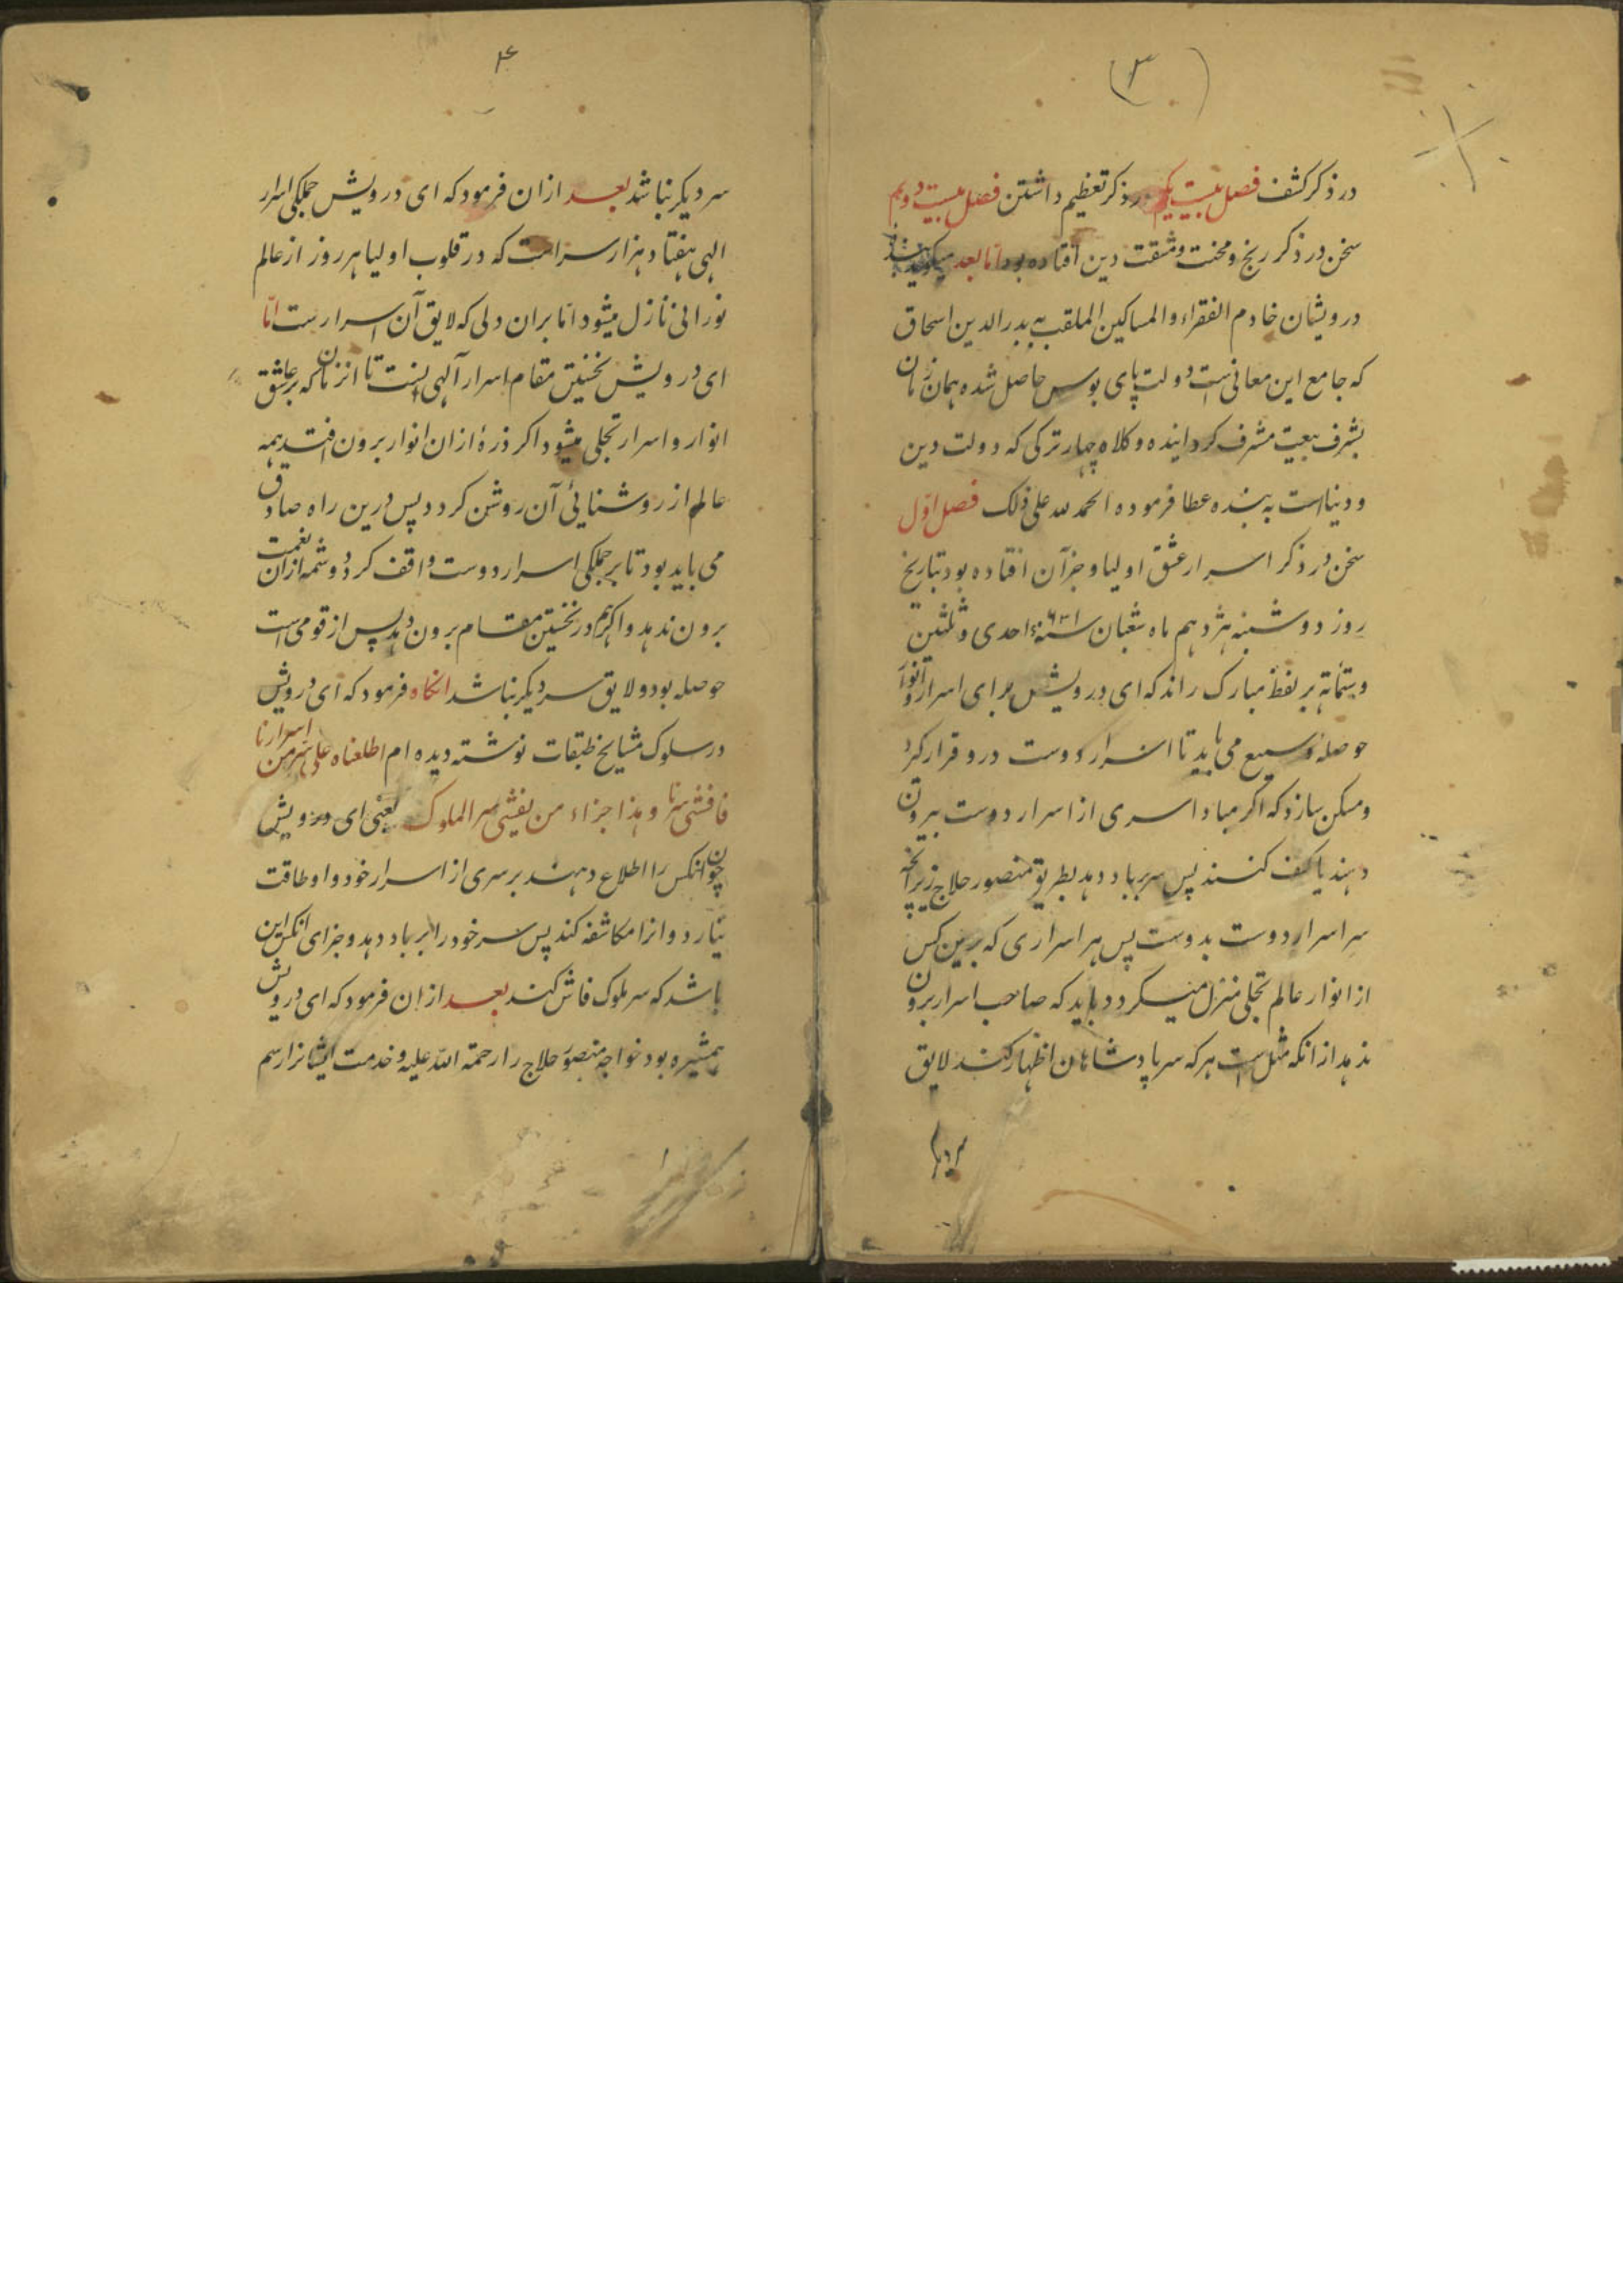 (۳)
در ذکر کشف فصل بیست یکم در ذکر تعظیم داشتن فصل بیست دویم
سخن در ذکر رنج و محنت و مشقت دین افتاده بود اما بعد میکوید بنده
درویشان خادم الفقراء والمساکین الملقب به بدرالدین اسحاق
که جامع این معانی است دولت پای بوس حاصل شده همان زمان
بشرف بیعت مشرف کردانیده و کلاه چهار ترکی که دولت دین
و دنیا است به بنده عطا فرموده الحمد لله علی ذلک فصل اول
سخن در ذکر اسرار عشق اولیا و جز آن افتاده بود بتاریخ
روز دوشنبه هژدهم ماه شعبان سنه ۶۳۱ احدی و ثلثین
و ستمائة بر لفظ مبارک راند که ای درویش برای اسرار و انوار
حوصلهٔ وسیع می باید تا اسرار دوست درو قرار کرد
و مسکن سازد که اکر مبادا سری از اسرار دوست بیرون
دهند یا کشف کنند پس سر بباد دهد بطریق منصور حلاج زیرانچه
سر اسرار دوست بدوست پس هر اسراری که برین کس
از انوار عالم تجلی منزل میکردد باید که صاحب اسرار برون
ندهد از انکه مثل است هر که سر پادشاهان اظهار کند لایق
سر دیکر
۴
سر دیکر نباشد بعد ازان فرمود که ای درویش جملکی اسرار
الهی هفتاد هزار سر است که در قلوب اولیا هر روز از عالم
نورانی نازل میشود اما بران دلی که لایق آن اسرار ست اما
ای درویش نخستین مقام اسرار آلهی اینست تا انزمان که بر عاشق
انوار و اسرار تجلی میشود اکر ذرهٔ ازان انوار برون افتد همه
عالم از روشنائی آن روشن کردد پس درین راه صادق
می باید بود تا بر جملکی اسرار دوست واقف کردد و شمه ازان نعمت
برون ندهد و اکر هم در نخستین مقام برون دهد پس از قومی است
حوصله بود و لایق سر دیکر نباشد انکاه فرمود که ای درویش
در سلوک مشایخ طبقات نوشته دیده ام اطلعناه علی سر من اسرارنا
فافشی سرنا و هذا جزاء من یفشی سر الملوک یعنی ای درویش
چون انکس را اطلاع دهند بر سری از اسرار خود و او طاقت
نیارد و انرا مکاشفه کند پس سر خود را بر باد دهد و جزای انکس این
باشد که سر ملوک فاش کند بعد ازان فرمود که ای درویش
همشیره بود خواجه منصور حلاج را رحمة الله علیه و خدمت ایشانرا رسم